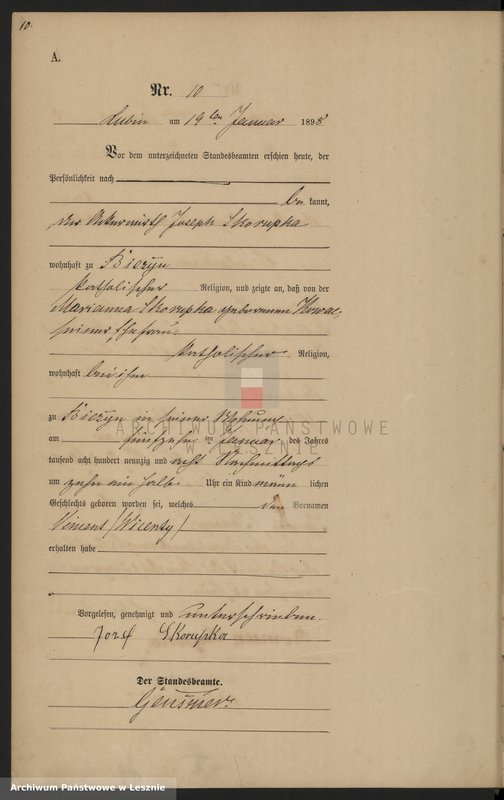 10.
A.
Nr. 10
Lubin am 19ten Januar 1898
Vor dem unterzeichneten Standesbeamten erschien heute, der
Persönlichkeit nach
be kannt,
der Ackerwirth Joseph Skorupka
wohnhaft zu Bieżyn
katholischer Religion, und zeigte an, daß von der
Marianna Skorupka geborenen
seiner Ehefrau
katholischer Religion,
wohnhaft bei ihm
zu Bieżyn in seiner Wohnung
am fünfzehn ten Januar des Jahres
tausend acht hundert neunzig und acht Nachmittags
um zehn ein halb Uhr ein Kind männ lichen
Geschlechts geboren worden sei, welches den Vornamen
Vincent /Wicenty/
erhalten habe
Vorgelesen, genehmigt und unterschrieben
Jozef Skorupka
Der Standesbeamte.
ARCHIWUM PAŃSTWOWE
W LESZNIE
Archiwum Państwowe w Lesznie